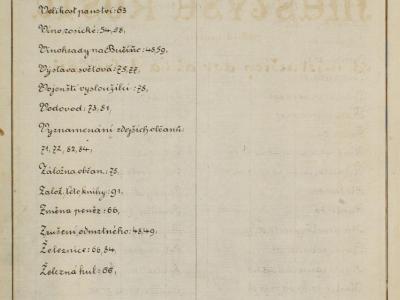 Velikost panství: 63
Víno rosické: 54, 58,
Vinohrady na Bučíně: 48, 59,
Výstava světová: 75, 77,
Vojenští vysloužilci: 78,
Vodovod: 73, 81,
Vyznamenání zdejších občanů:
71, 72, 82, 84,
Záložna občan.: 75.
Založ. této knihy: 91,
Změna peněz: 66,
Zrušení odmrtného: 48, 49,
Železnice: 66, 84.
Železná huť: 66,